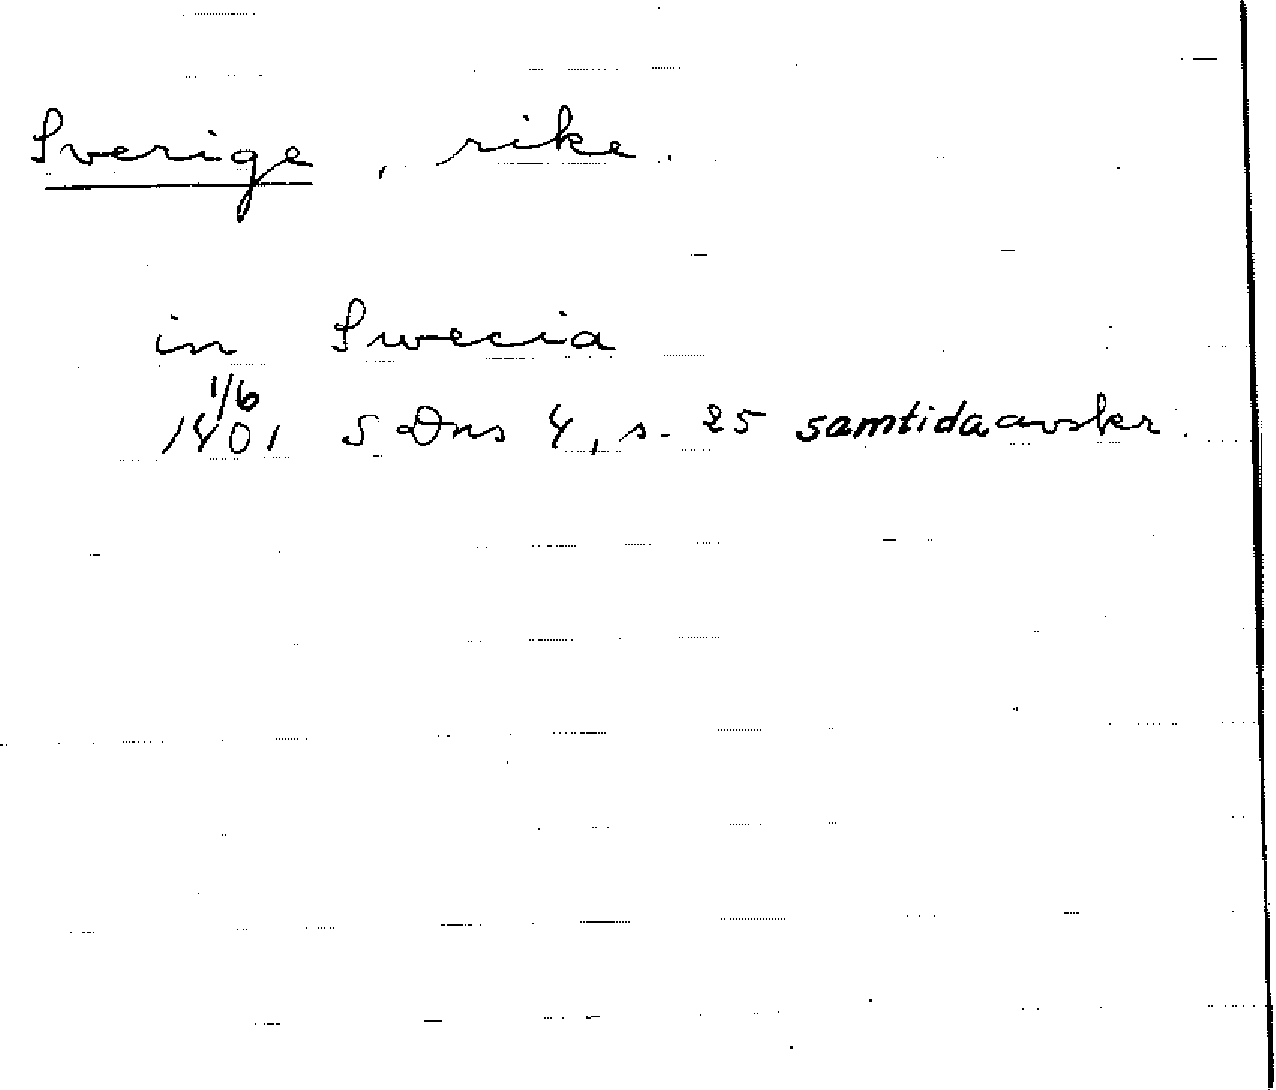 Sverige, rike.
in Swecia
1/6
1401 SDns 4, s. 25 samtida avskr.